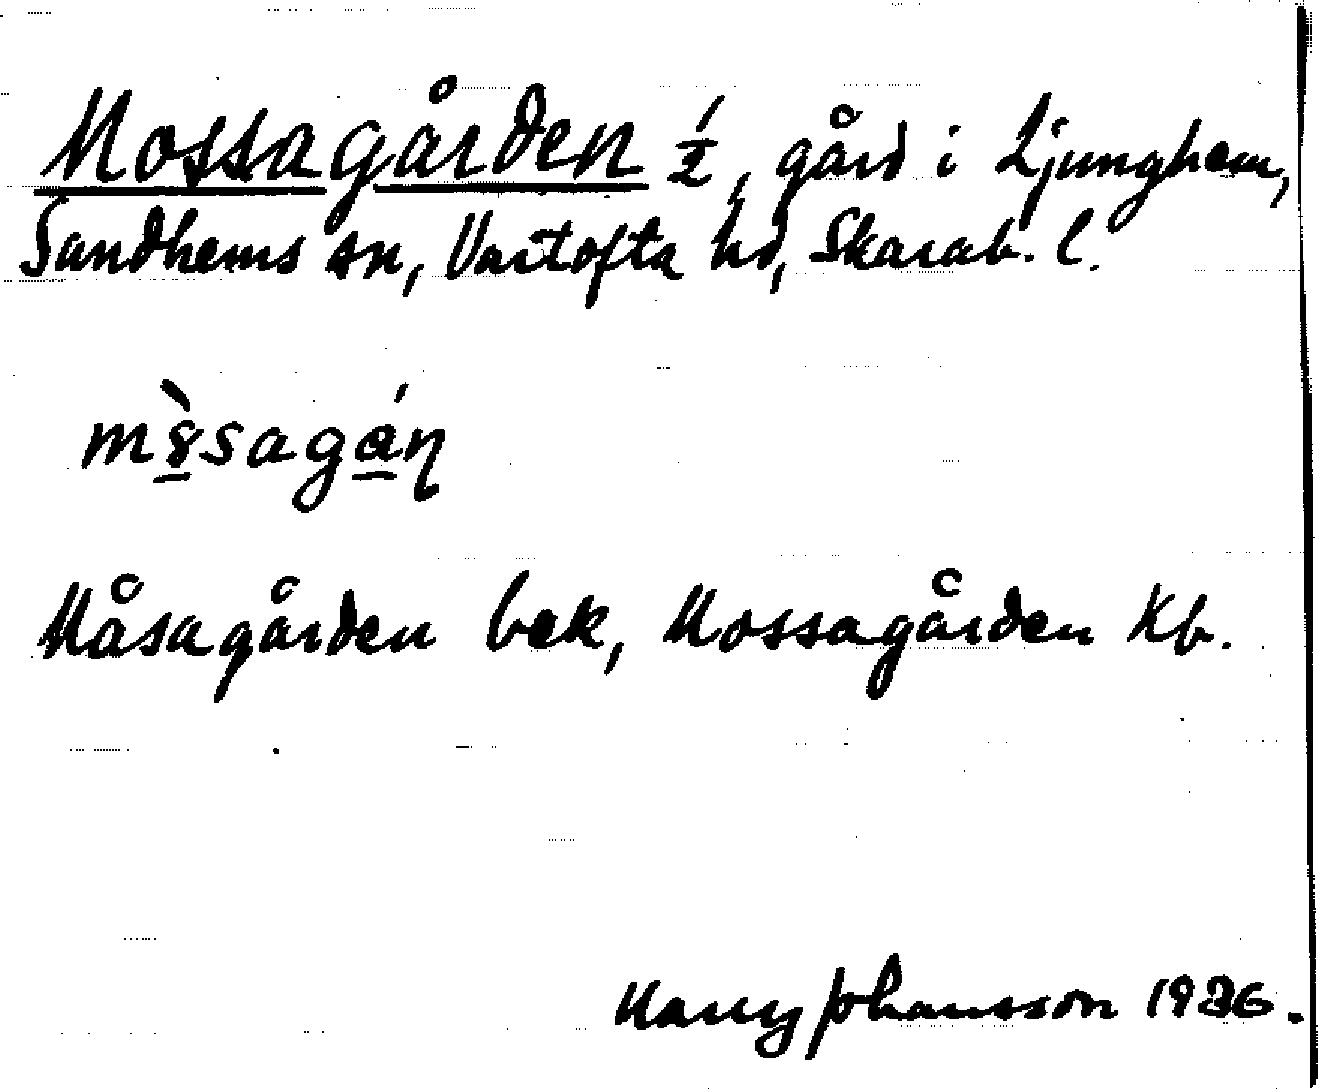 Mossagården ź, gård i Ljunghem,
Sandhems sn, Vartofta hd, Skarab. l.
m
Måsagården bek, Mossagården Kb.
Harry Johansson 1936.